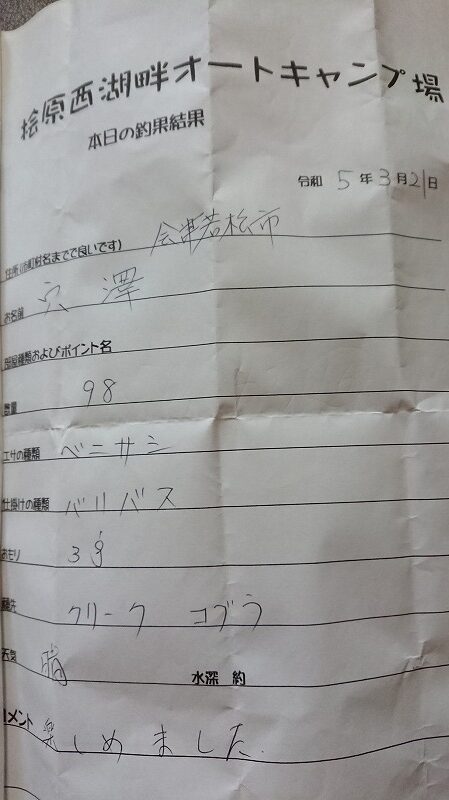 桧原西湖畔オートキャンプ場
本日の釣果結果
令和 5年3月21日
住所(市町村名までで良いです) 会津若松市
お名前 穴澤
部屋種類およびポイント名
数量 98
エサの種類 ベニサシ
仕掛けの種類 バリバス
おもり 3g
穂先 クリーク コブラ
天気 晴 水深 約
コメント 楽しめました.